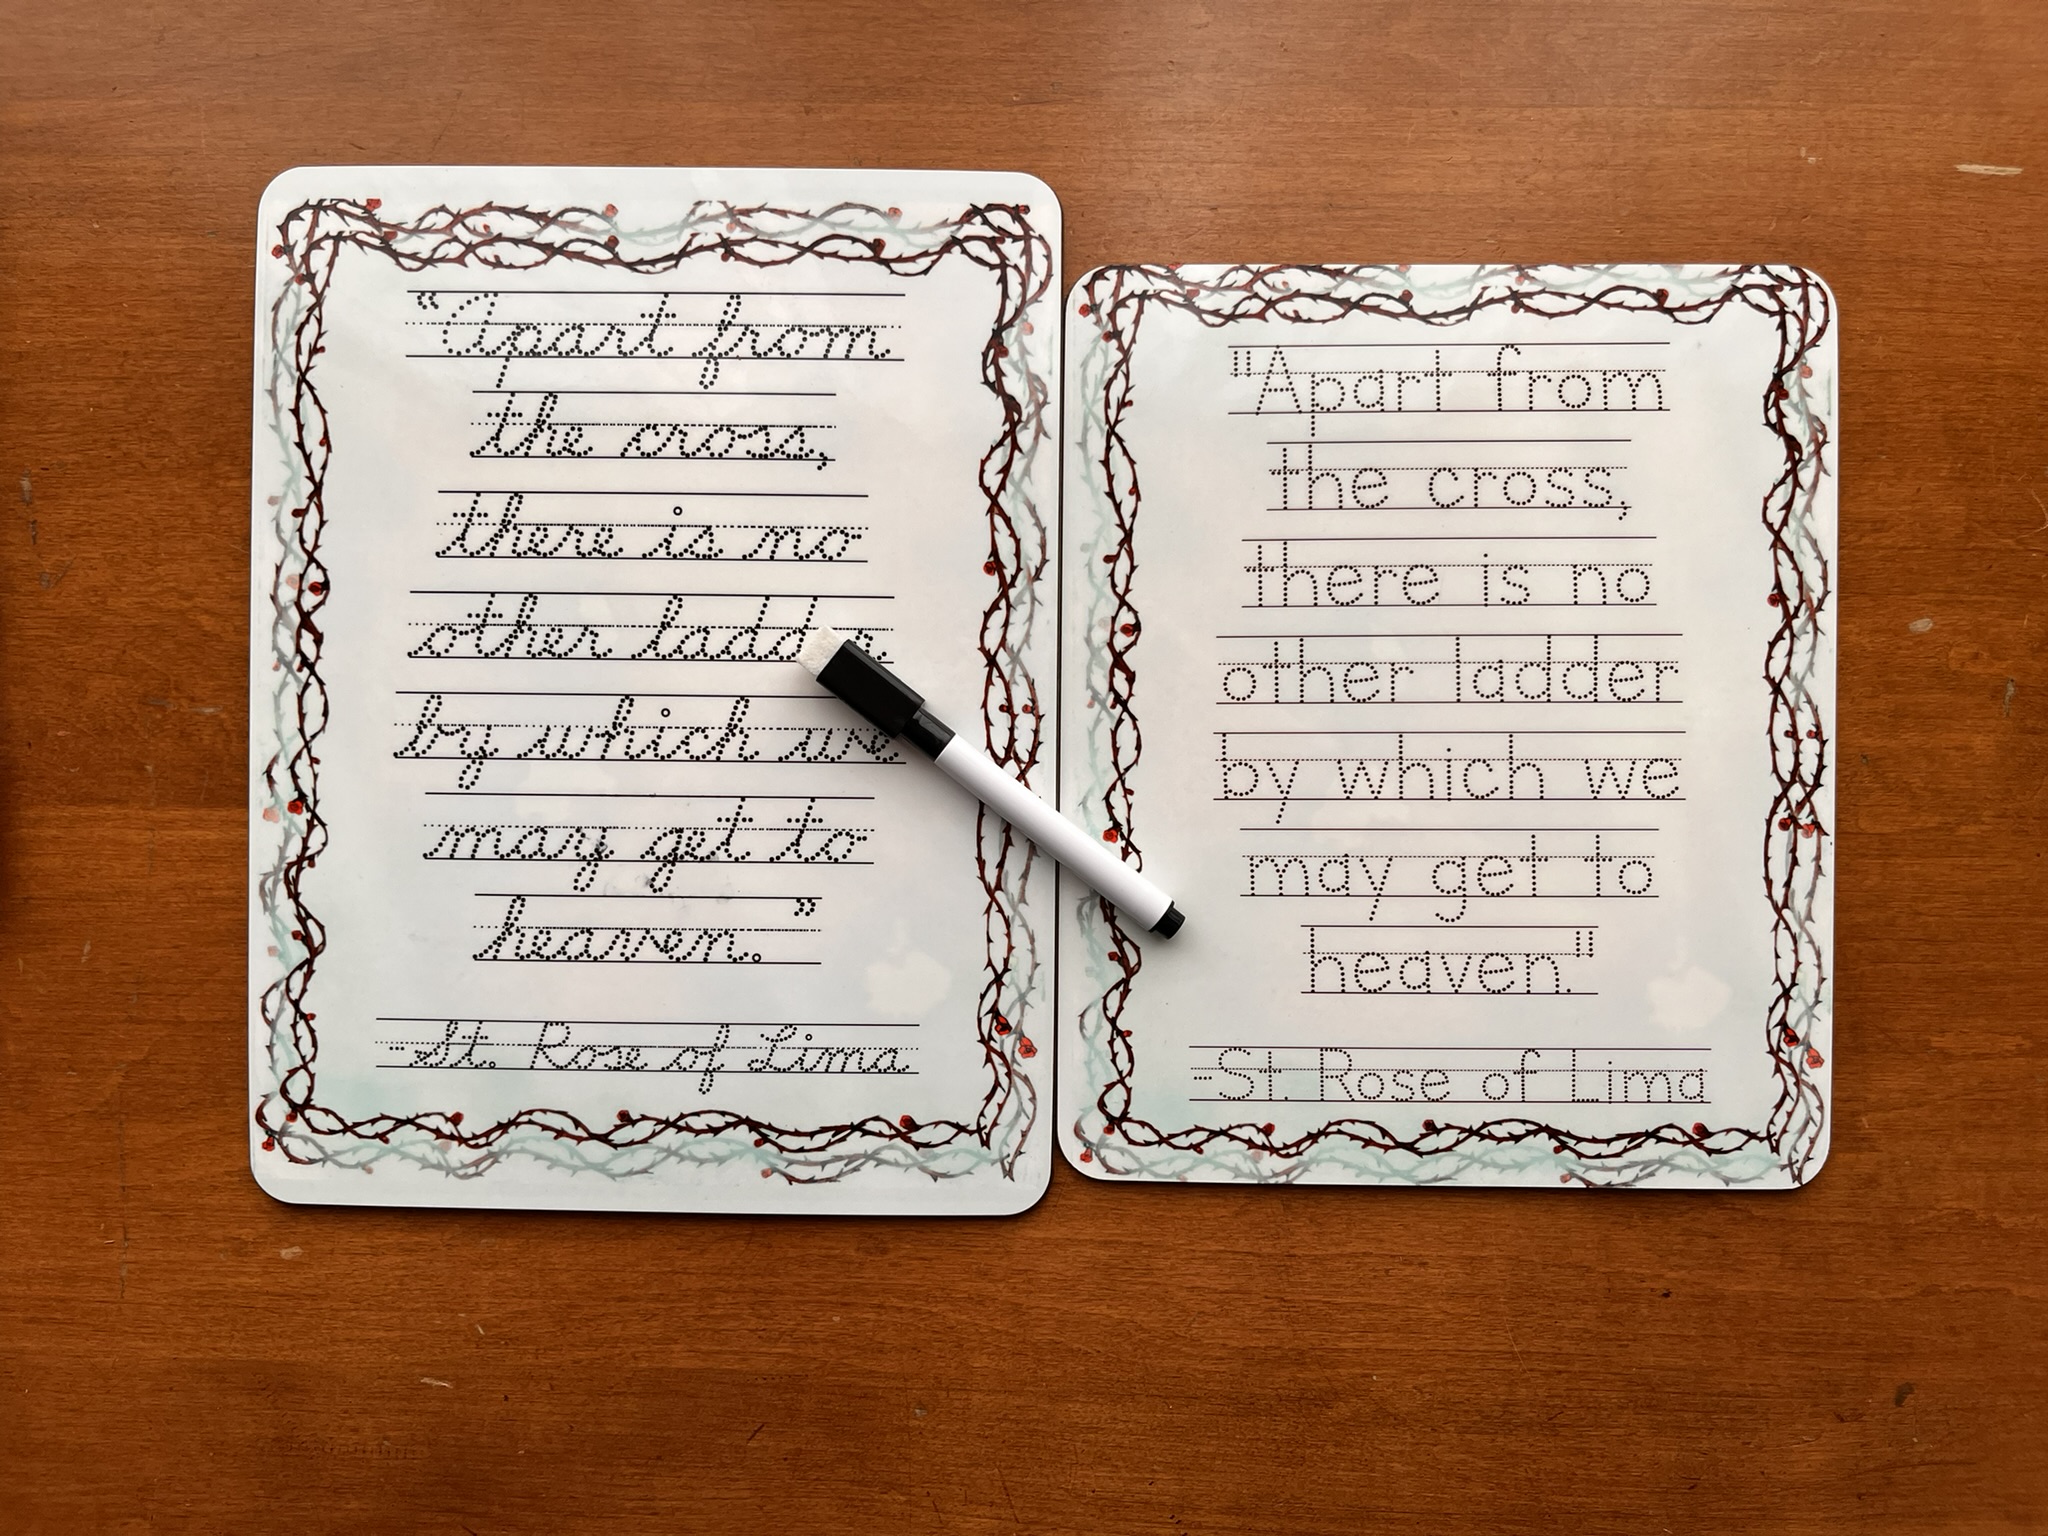 “Apart from
the cross,
there is no
other
by which we
may get to
heaven.”
-St. Rose of Lima
"Apart from
the cross,
there is no
other ladder
by which we
may get to
heaven."
-St. Rose of Lima